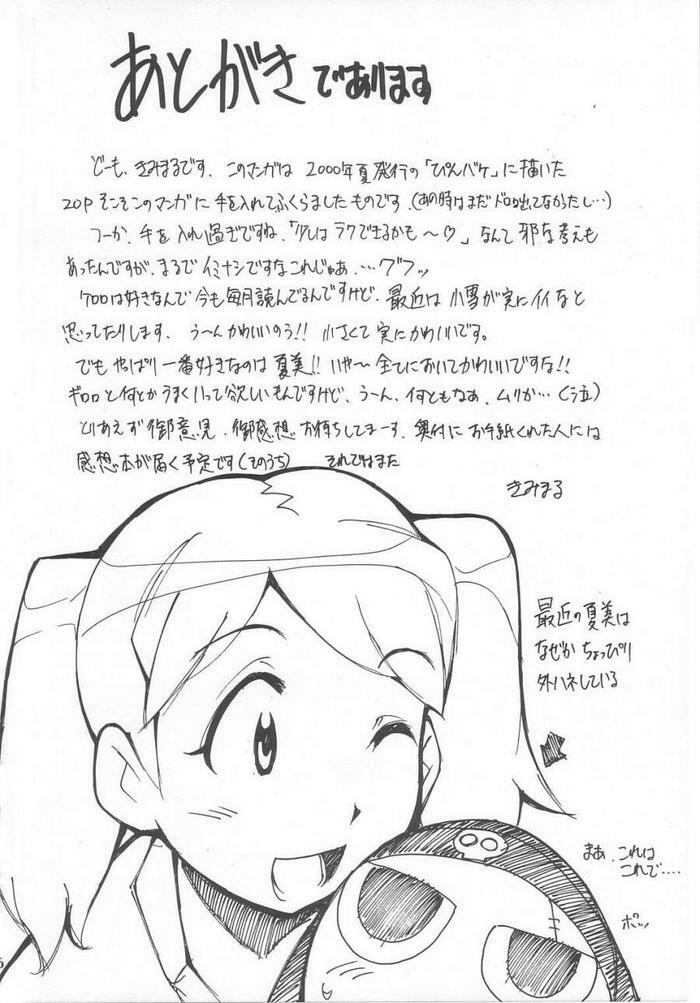 あとがきであります
どーも、きみまるです。このマンガは2000年夏発行の「ぴんバケ」に描いた
20Pそこそこのマンガに手を入れてふくらましたものです。(あの時はまだドロロ出てなかったし…)
つーか、手を入れ過ぎですね。「少しはラクできるかも～♡」なんて邪な考えも
あったんですが、まるでイミナシですなこれじゃあ。…グフッ
ケロロは好きなんで今も毎月読んでるんですけど、最近は小雪が実にイイなと
思ってたりします。う～んかわいいのう!!小さくて実にかわいいです。
でもやっぱり一番好きなのは夏美!!いや～全てにおいてかわいいですな!!
ギロロと何とかうまくいって欲しいもんですけど、う～ん、何ともなあ、ムリか…(泣)
とりあえず御意見、御感想お待ちしてまーす。奥付にお手紙くれた人には
感想本が届く予定です(そのうち) それではまた
きみまる
最近の夏美は
なぜかちょっぴり
外ハネしている
まあ、これは
これで....
ポッ